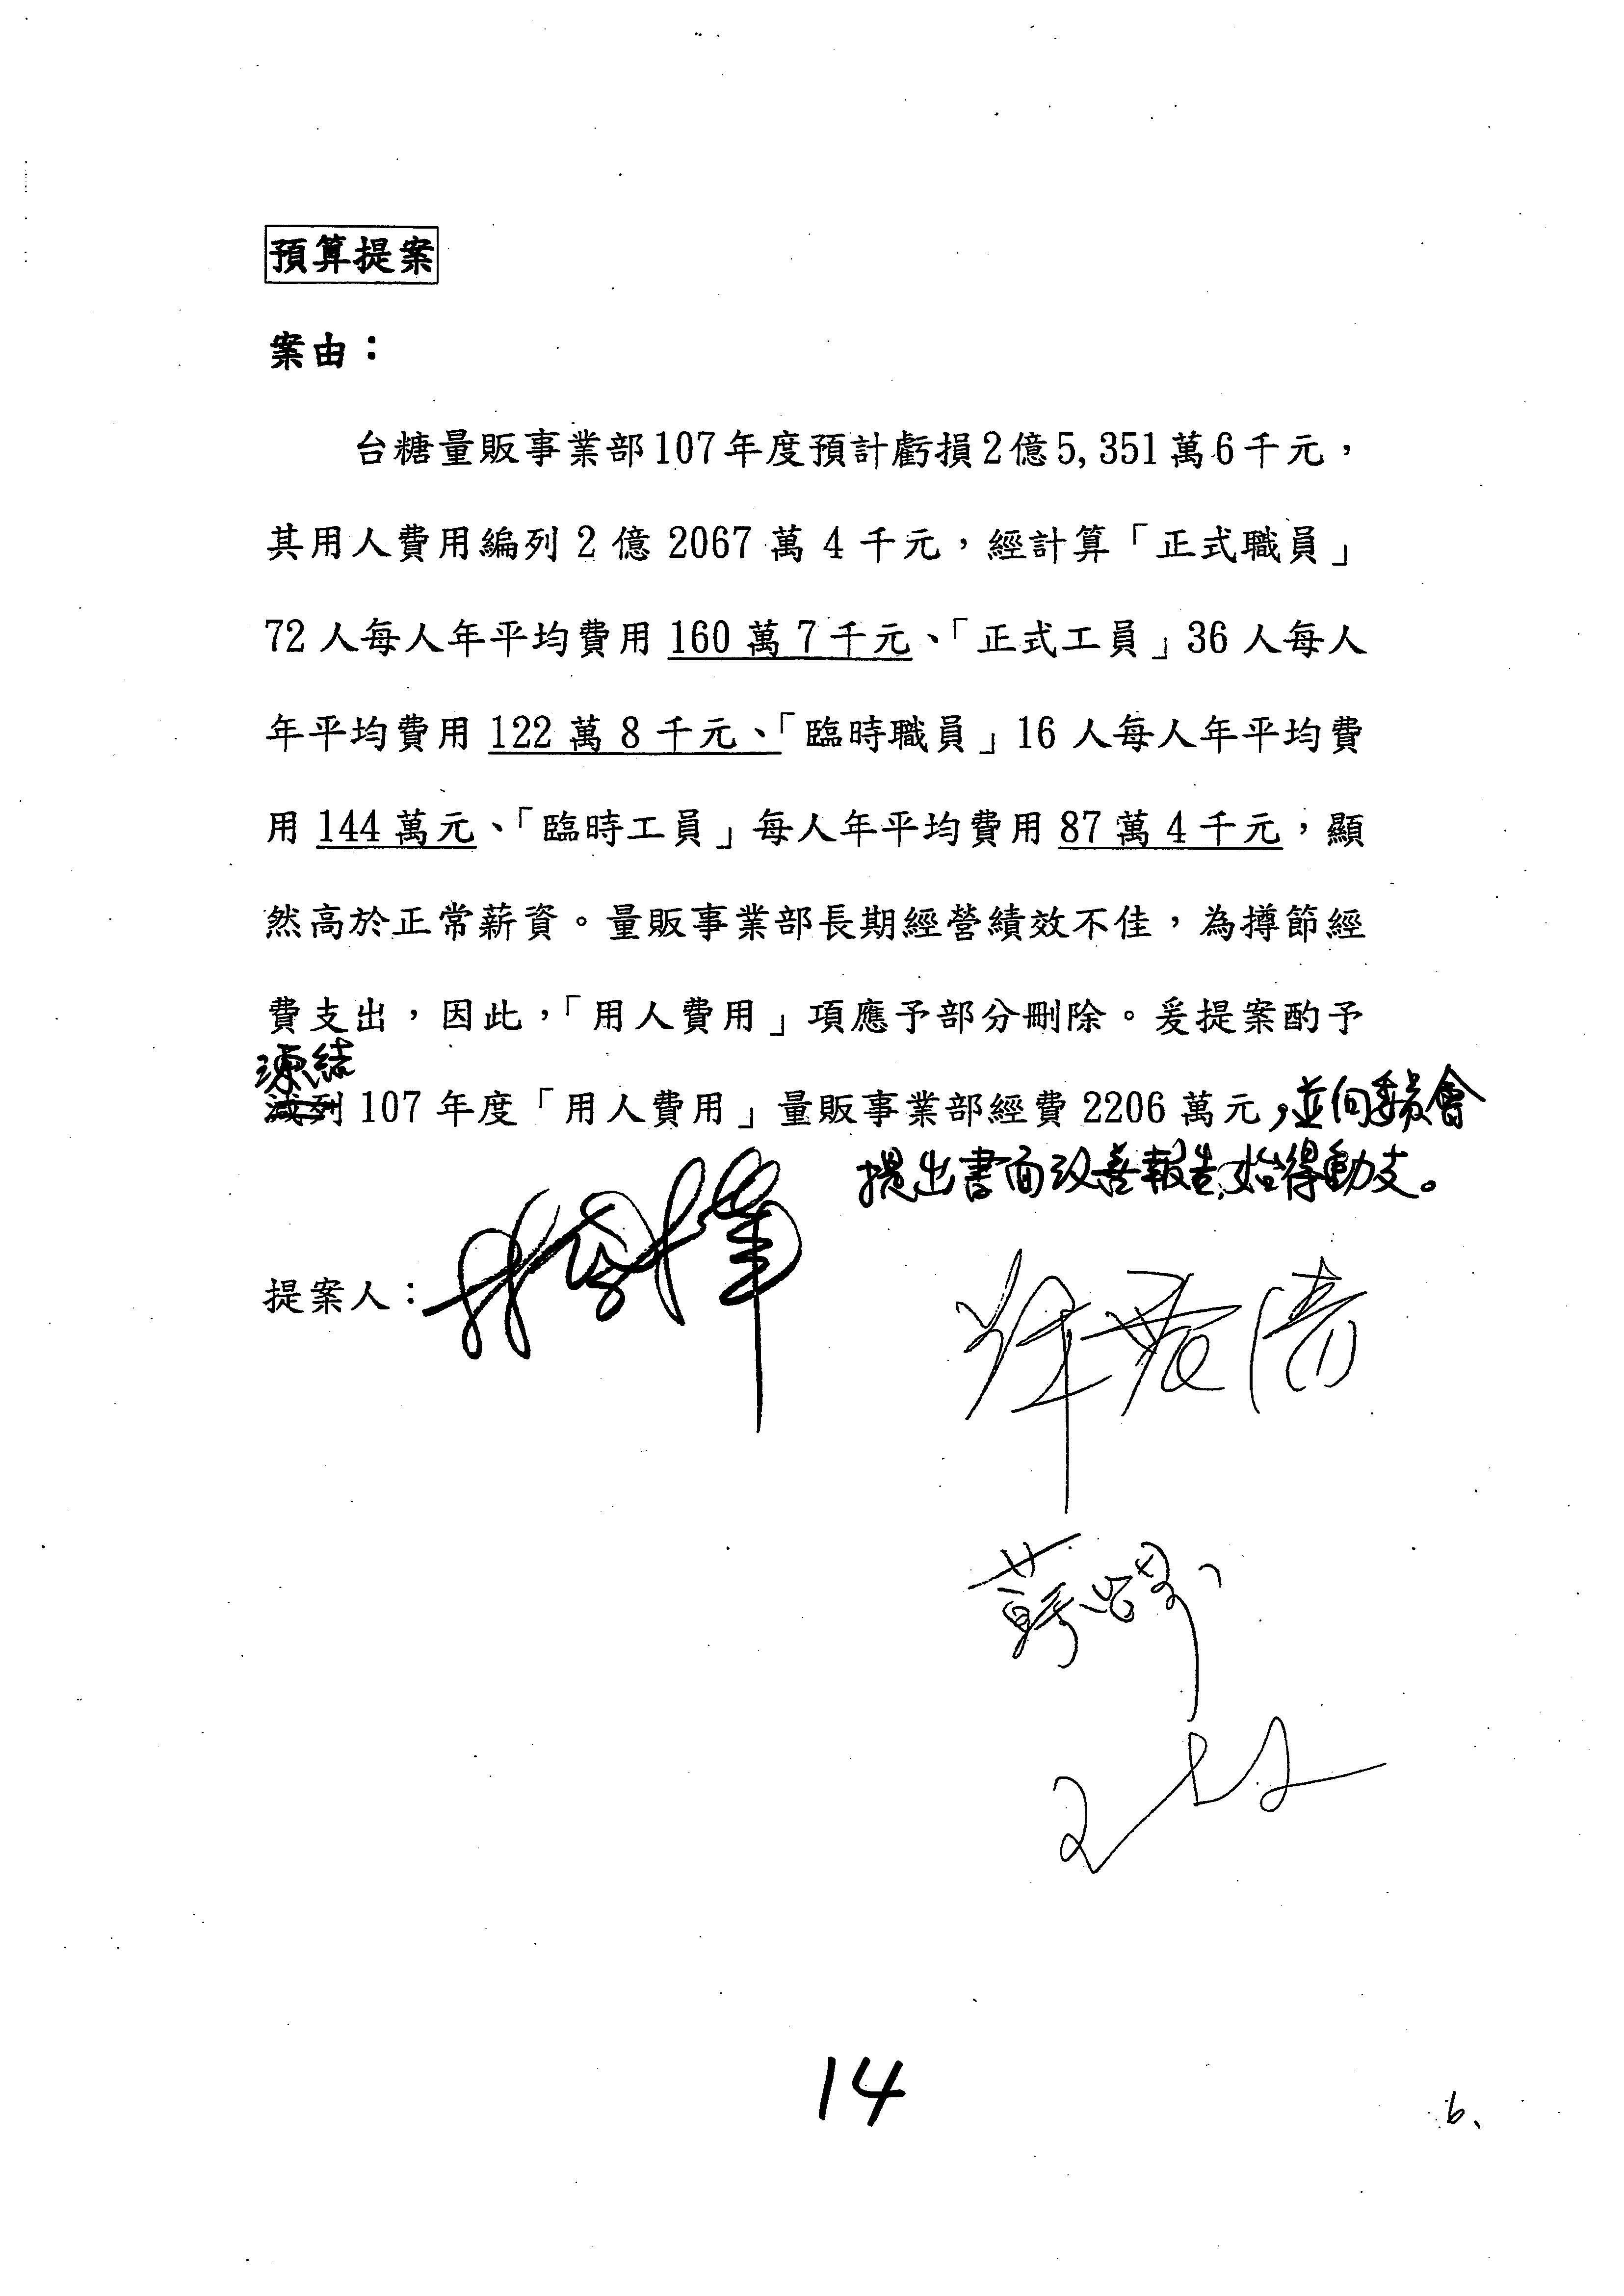 預算提案
案由：
台糖量販事業部107年度預計虧損2億5,351萬6千元，
其用人費用編列2億2067萬4千元，經計算「正式職員」
72人每人年平均費用160萬7千元、「正式工員」36人每人
年平均費用122萬8千元、「臨時職員」16人每人年平均費
用144萬元、「臨時工員」每人年平均費用87萬4千元，顯
然高於正常薪資。量販事業部長期經營績效不佳，為撙節經
費支出，因此，「用人費用」項應予部分刪除。爰提案酌予
凍結
減列107年度「用人費用」量販事業部經費2206萬元，並向委員會
提出書面改善報告，始得動支。
提案人：
14
6、